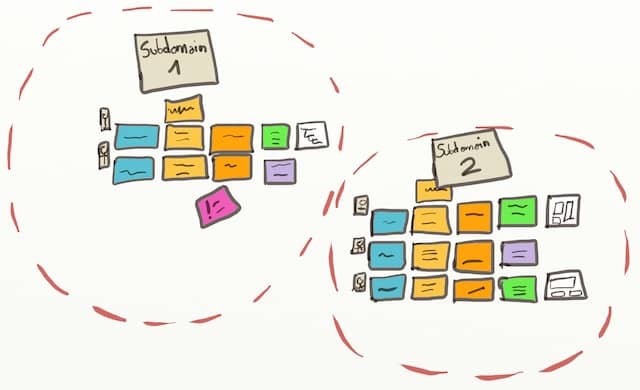 Subdomain
1
Subdomain
2
!